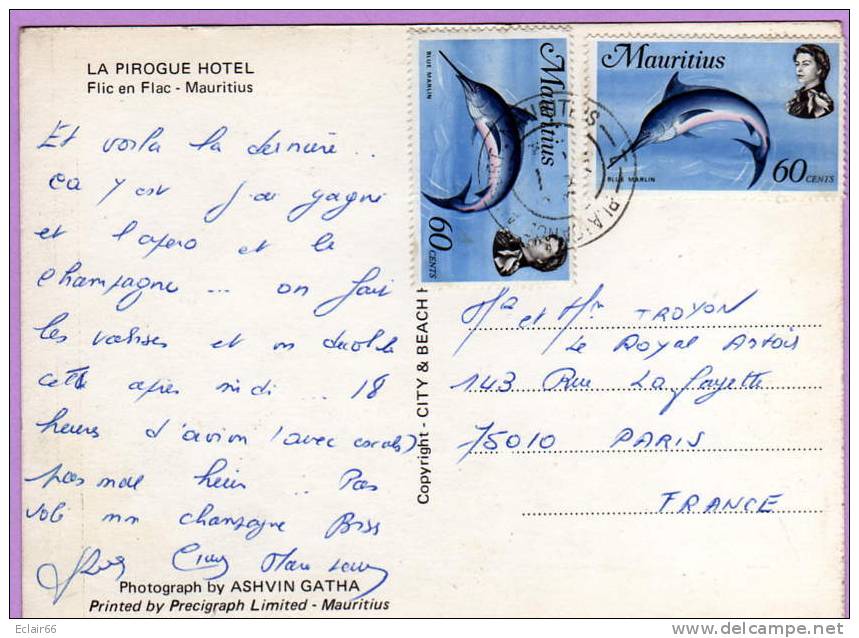 LA PIROGUE HOTEL
Flic en Flac - Mauritius
Et voila la dernière ..
ca y est j'ai gagné
et l'apero et le
champagne ... on fait
les valises et on
cette après midi .. 18
heures d'avion (avec escales)
pas mal hein .. Pas
volé mon champagne Biss
Photograph by ASHVIN GATHA
Printed by Precigraph Limited - Mauritius
Copyright - CITY & BEACH
BLUE MARLIN
Mauritius
60 CENTS
Mauritius
BLUE MARLIN
60 CENTS
Ma et Mr TROYON
Le Royal Artois
143 Rue La fayette
75010 PARIS
FRANCE
Eclair66
www.delcampe.net